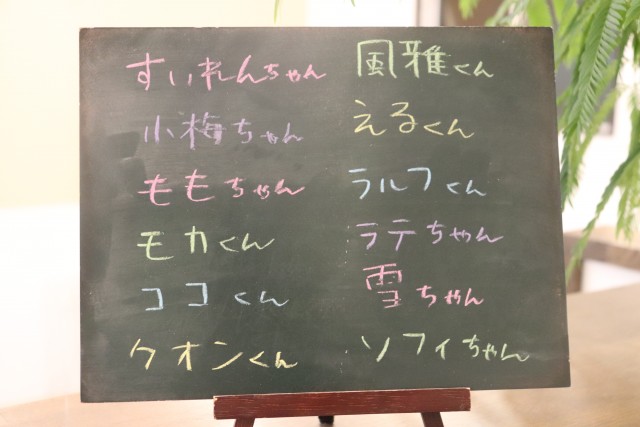 すいれんちゃん
小梅ちゃん
ももちゃん
モカくん
ココくん
クオンくん
風雅くん
えるくん
ラルフくん
ラテちゃん
雪ちゃん
ソフィちゃん